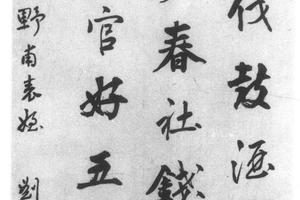 伐鼓酒
春社錢
官好五
野甫表姪 劉